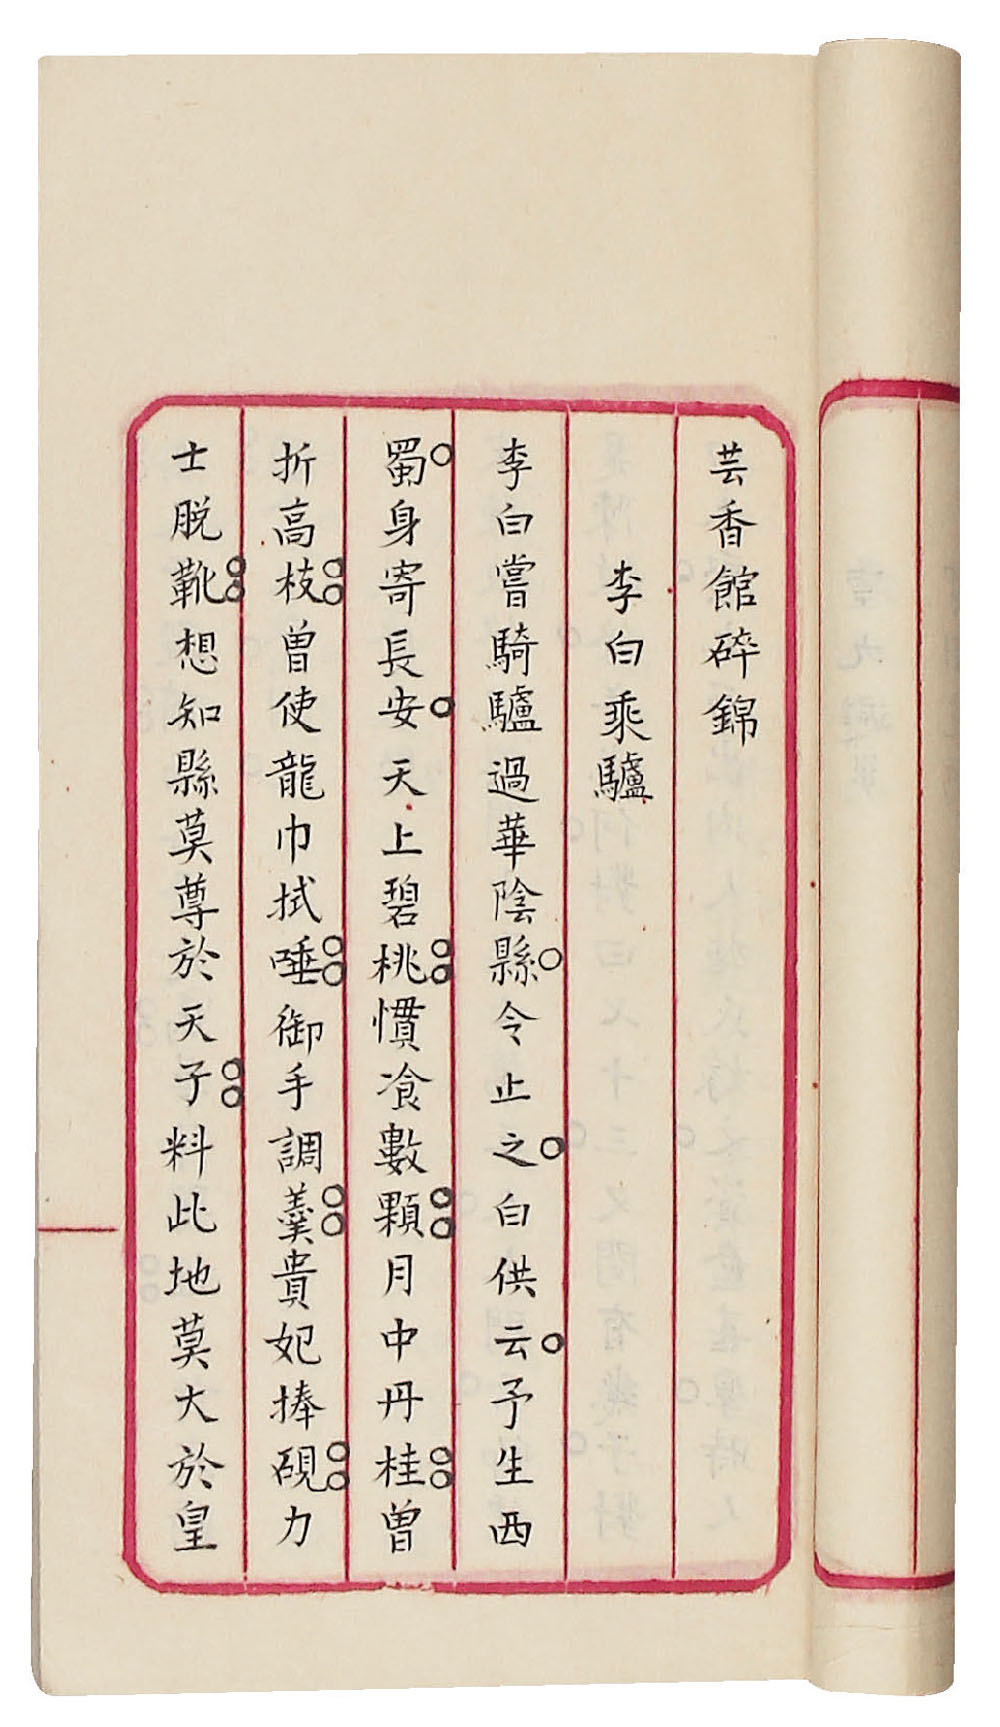 芸香館碎錦
李白乘驢
李白嘗騎驢過華陰縣令止之白供云予生西
蜀身寄長安天上碧桃慣飡數顆月中丹桂曾
折高枝曾使龍巾拭唾御手調羹貴妃捧硯力
士脫靴想知縣莫尊於天子料此地莫大於皇